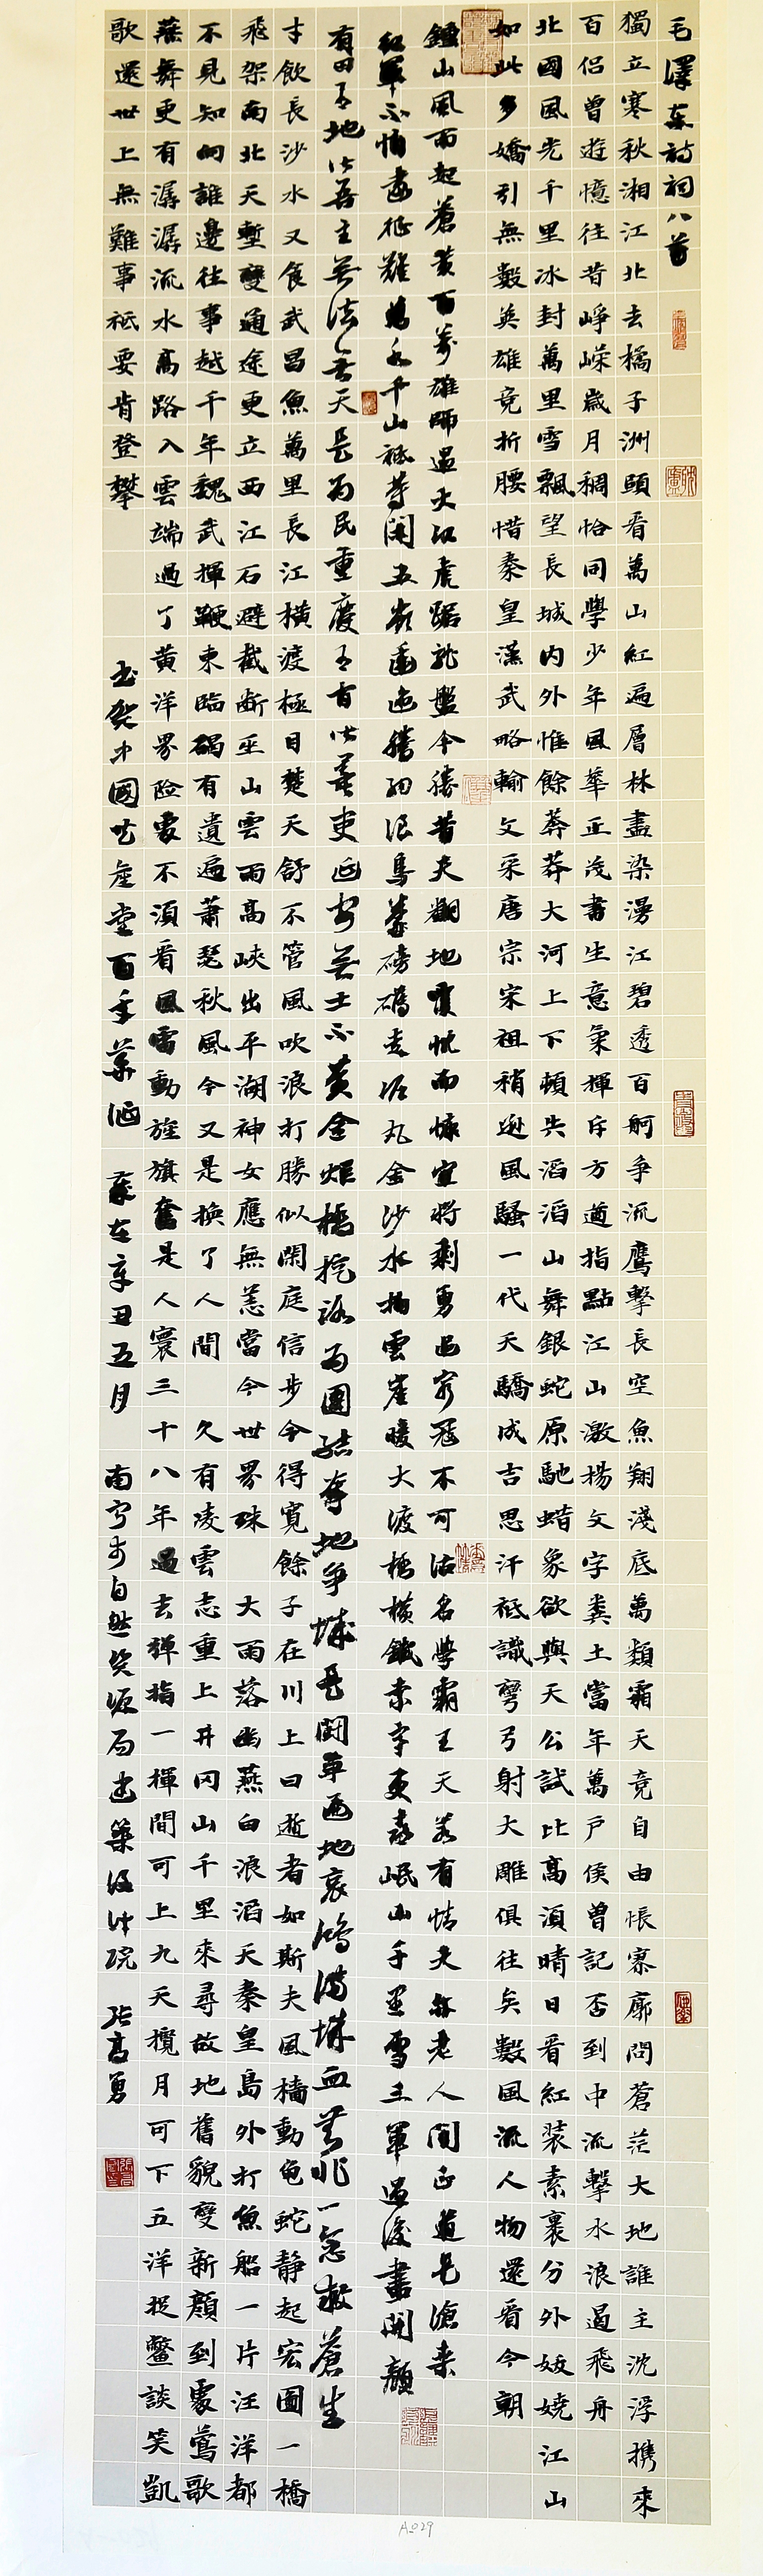 毛澤東詩詞八首
獨立寒秋湘江北去橘子洲頭看萬山紅遍層林盡染漫江碧透百舸爭流鷹擊長空魚翔淺底萬類霜天竞自由悵寥廓問蒼茫大地誰主沈浮携來
百侣曾遊憶往昔崢嶸歲月稠恰同學少年風華正茂書生意氣揮斥方遒指點江山激揚文字糞土當年萬户侯曾記否到中流擊水浪遏飛舟
北國風光千里冰封萬里雪飄望長城内外惟餘莽莽大河上下頓失滔滔山舞銀蛇原馳蜡象欲與天公試比高須晴日看紅装素裹分外妖娆江山
如此多嬌引無數英雄竞折腰惜秦皇漢武略輸文采唐宗宋祖稍遜風騷一代天驕成吉思汗祇識彎弓射大雕俱往矣數風流人物還看今朝
鍾山風雨起蒼黃百萬雄師過大江虎踞龍盤今勝昔天翻地覆慨而慷宜將剩勇追窮寇不可沽名學霸王天若有情天亦老人間正道是滄桑
紅軍不怕遠征難萬水千山祇等閑五嶺逶迤騰細浪烏蒙磅礴走泥丸金沙水拍雲崖暖大渡橋橫鐵索寒更喜岷山千里雪三軍過後盡開顏
有田有地皆吾主無法無天是為民重慶有官皆墨吏延安無土不黃金炸橋挖路為團結奪地爭城是鬭爭遍地哀鴻滿城血無非一念救蒼生
才飲長沙水又食武昌魚萬里長江橫渡極目楚天舒不管風吹浪打勝似閑庭信步今得寬餘子在川上曰逝者如斯夫風檣動龟蛇静起宏圖一橋
飛架南北天塹變通途更立西江石避截斷巫山雲雨高峽出平湖神女應無恙當今世界殊 大雨落幽燕白浪滔天秦皇島外打魚船一片汪洋都
不見知向誰邊往事越千年魏武揮鞭東臨碣有遺遍蕭瑟秋風今又是换了人間 久有凌雲志重上井冈山千里來尋故地舊貌變新顏到處鶯歌
燕舞更有潺潺流水高路入雲端過了黃洋界险處不須看風雷動旌旗奮是人寰三十八年過去彈指一揮間可上九天攬月可下五洋捉鱉談笑凱
歌還世上無難事祇要肯登攀 書贺中國共產黨百年華诞 歲在辛丑五月 南宁市自然资源局建築设计院 張高勇
A029